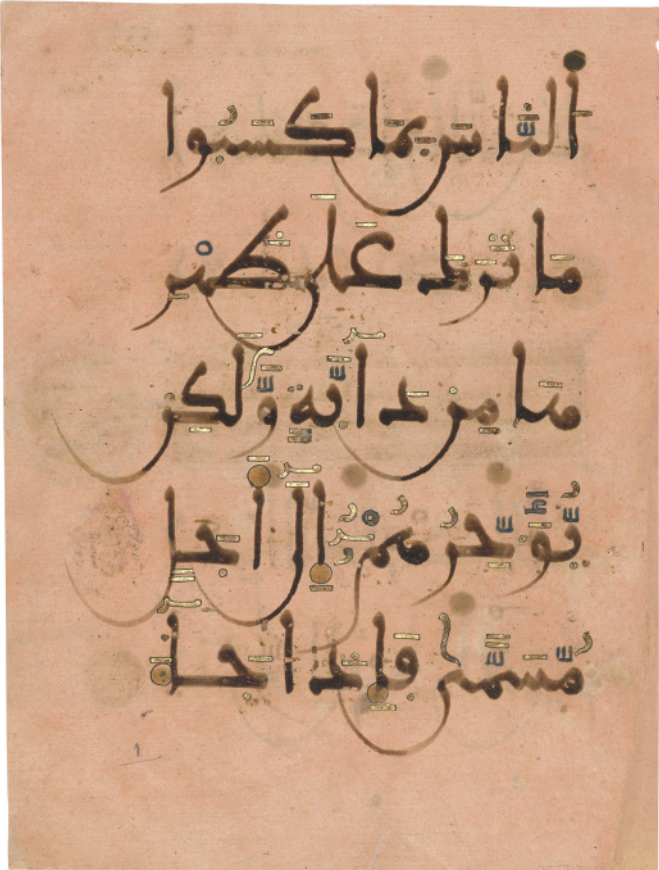 الناس بما كسبوا
ما ترك على ظهر
ها من دابة ولكن
يؤخرهم إلى أجل
مسمى فإذا جاء